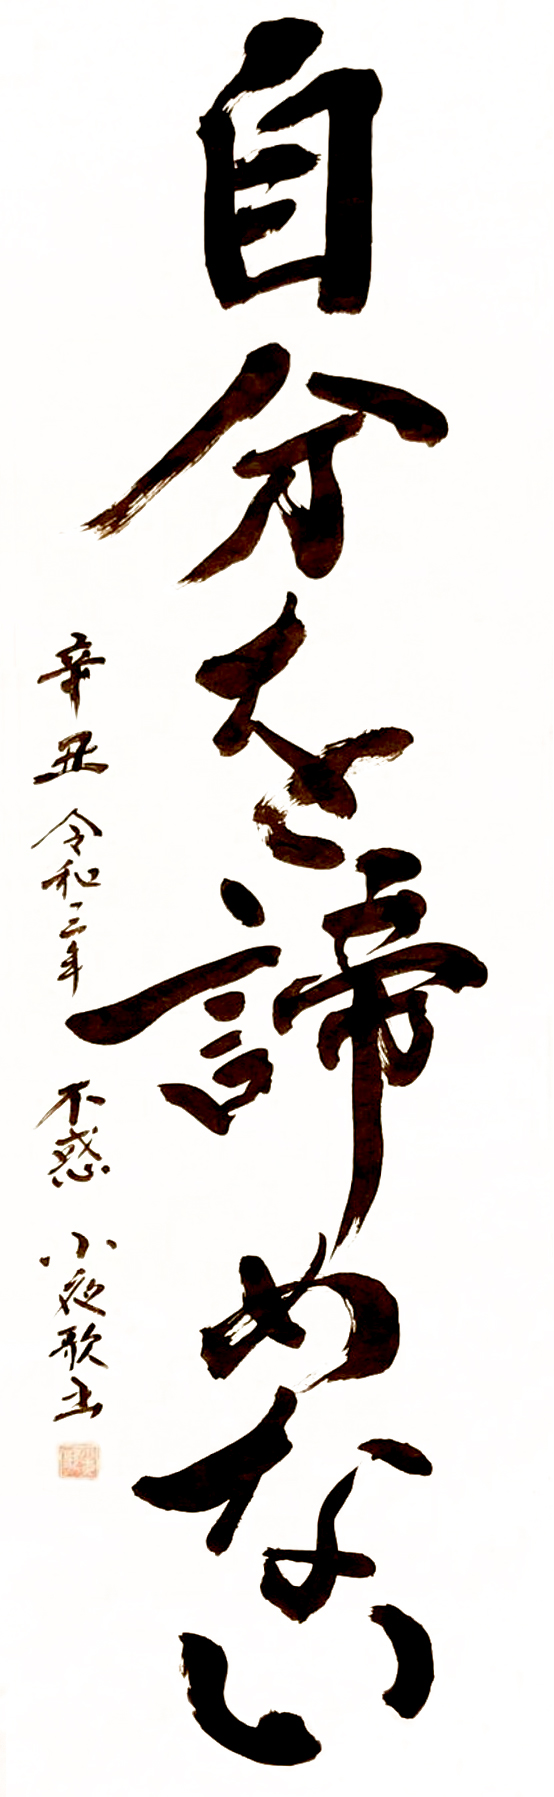 自分を諦めない
辛丑 令和三年 不惑 小夜歌書